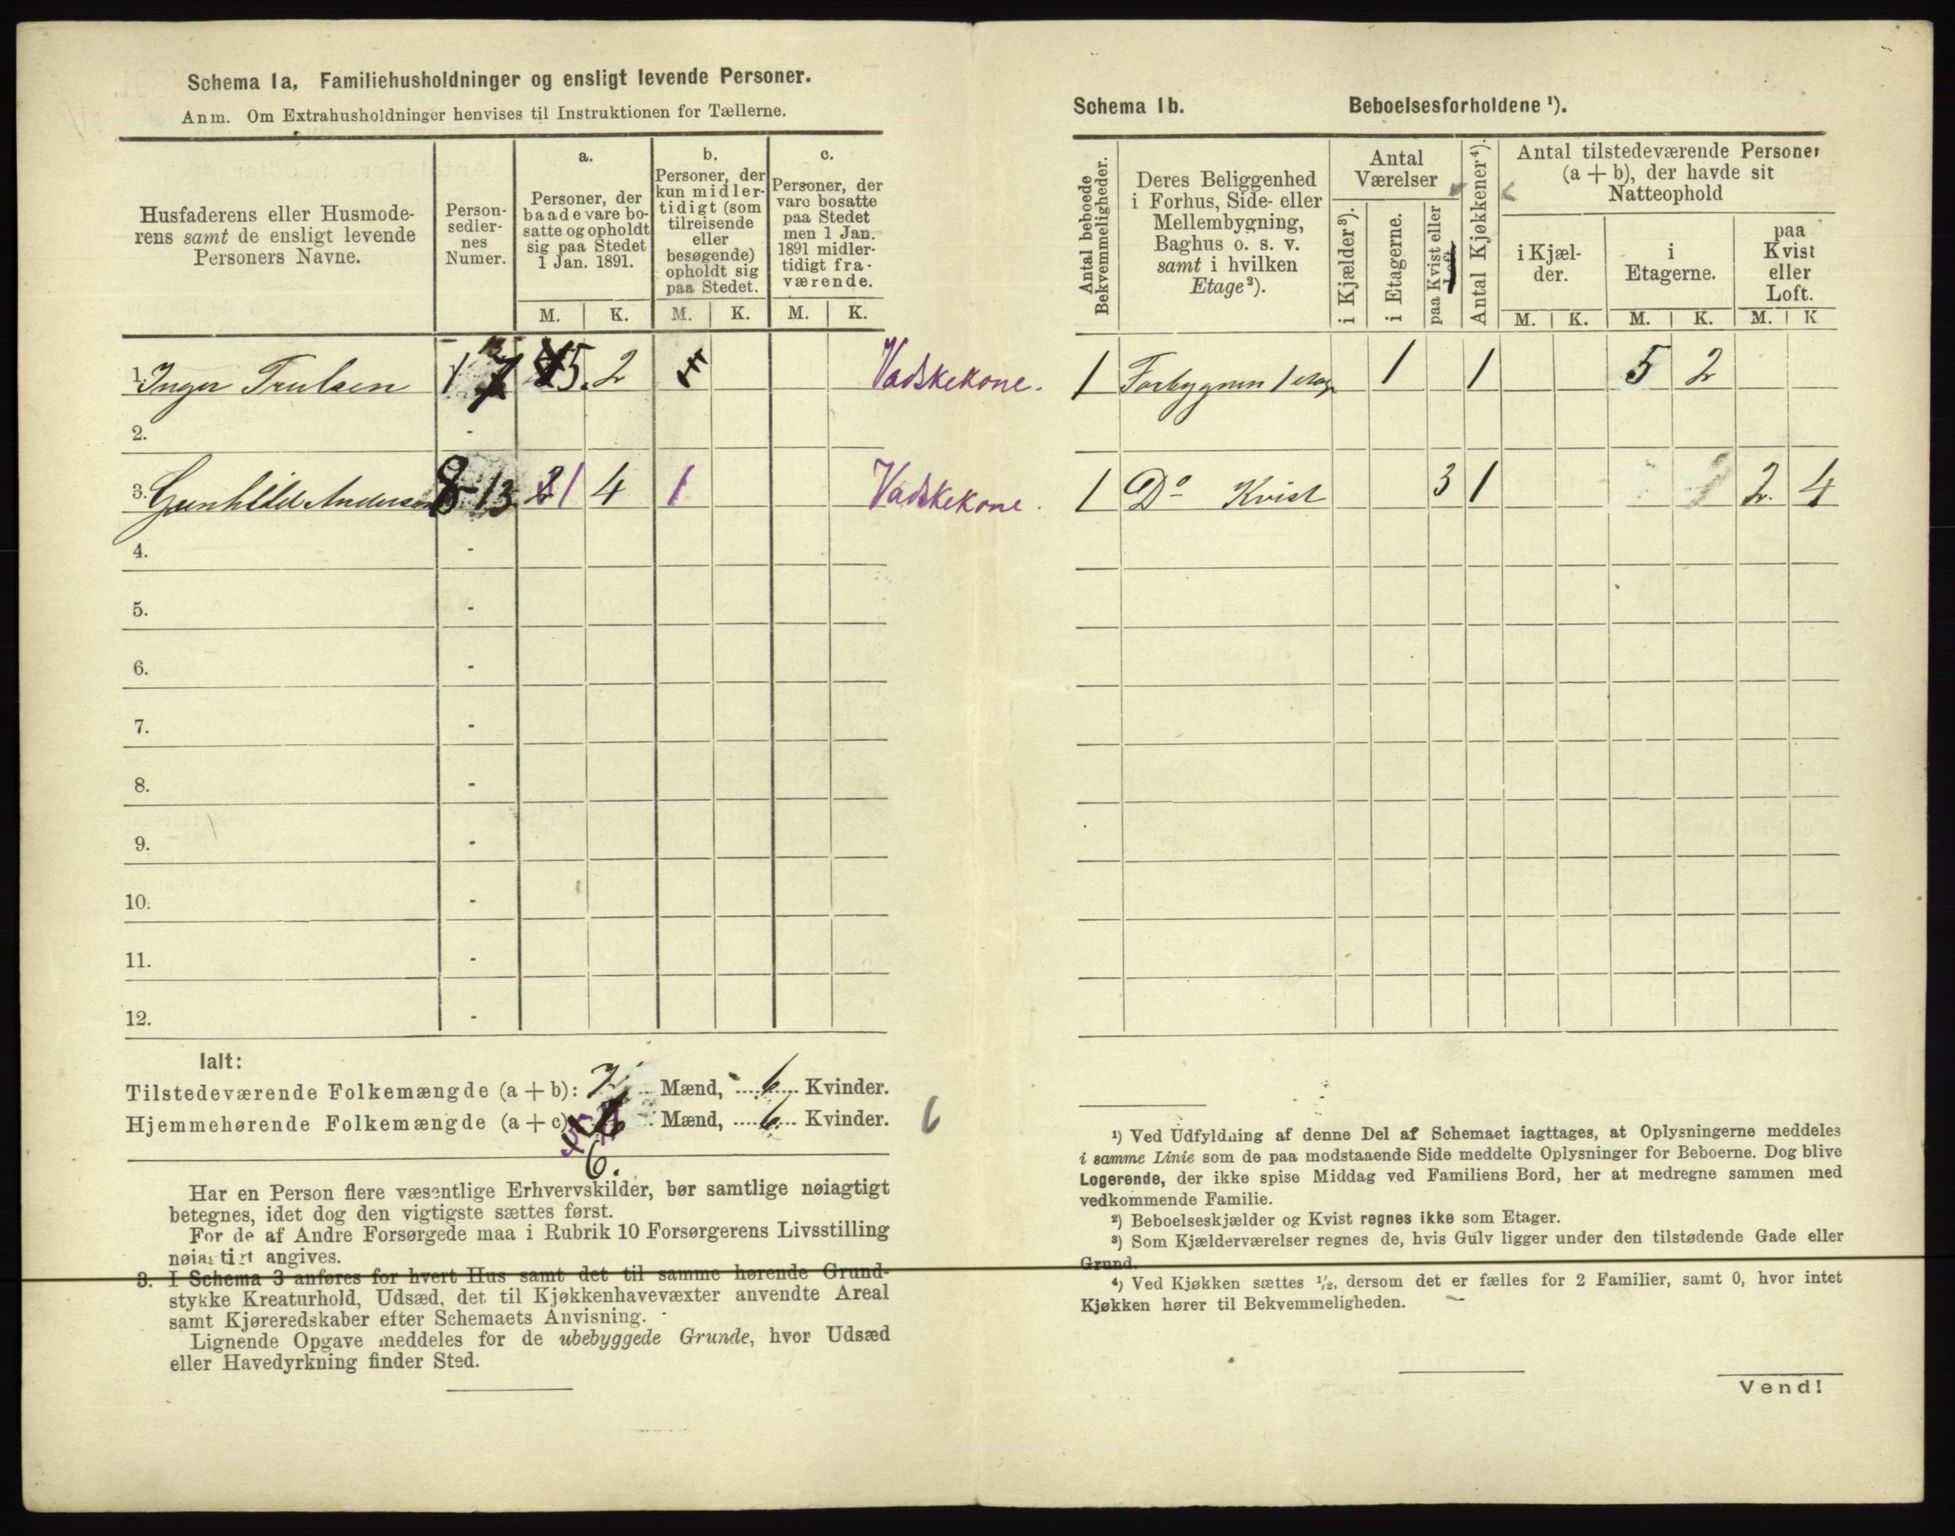 Schema 1a. Familiehusholdninger og ensligt levende Personer.
Anm. Om Extrahusholdninger henvises til Instruktionen for Tællerne.
Husfaderens eller Husmode-
rens samt de ensligt levende
Personers Navne.
Person-
sedler-
nes
Numer.
a.
Personer, der
baade vare bo-
satte og opholdt
sig paa Stedet
1 Jan. 1891.
b.
Personer, der
kun midler-
tidigt (som
tilreisende
eller
besøgende)
opholdt sig
paa Stedet.
c.
Personer, der
vare bosatte
paa Stedet
men 1 Jan.
1891 midler-
tidigt fra-
værende.
M. K. M. K. M. K.
1. Inger Trulsen 1 7 5. 2 Vadskekone.
2. -
3. Gunhild Anderson 8-13 1 4 1 Vadskekone.
4. -
5. -
6. -
7. -
8. -
9. -
10. -
11. -
12. -
Ialt:
Tilstedeværende Folkemængde (a + b): 7 Mænd, 6 Kvinder.
Hjemmehørende Folkemængde (a + c): Mænd, 6 Kvinder. 6
6.
Har en Person flere væsentlige Erhvervskilder, bør samtlige nøiagtigt
betegnes, idet dog den vigtigste sættes først.
For de af Andre Forsørgede maa i Rubrik 10 Forsørgerens Livsstilling
nøiagtigt angives.
3. I Schema 3 anføres for hvert Hus samt det til samme hørende Grund-
stykke Kreaturhold, Udsæd, det til Kjøkkenhavevæxter anvendte Areal
samt Kjøreredskaber efter Schemaets Anvisning.
Lignende Opgave meddeles for de ubebyggede Grunde, hvor Udsæd
eller Havedyrkning finder Sted.
Schema 1b. Beboelsesforholdene ¹).
Antal beboede
Bekvemmeligheder.
Deres Beliggenhed
i Forhus, Side- eller
Mellembygning,
Baghus o. s. v.
samt i hvilken
Etage²).
Antal
Værelser
i Kjælder³).
i Etagerne.
paa Kvist eller
Loft.
Antal Kjøkkener⁴).
Antal tilstedeværende Personer
(a + b), der havde sit
Natteophold
i Kjæl-
der.
i
Etagerne.
paa
Kvist
eller
Loft.
M. K. M. K. M. K
1 Forbygnin 1 etage 1 1 5 2
1 Do Kvist 3 1 2. 4
¹) Ved Udfyldning af denne Del af Schemaet iagttages, at Oplysningerne meddeles
i samme Linie som de paa modstaaende Side meddelte Oplysninger for Beboerne. Dog blive
Logerende, der ikke spise Middag ved Familiens Bord, her at medregne sammen med
vedkommende Familie.
²) Beboelseskjælder og Kvist regnes ikke som Etager.
³) Som Kjælderværelser regnes de, hvis Gulv ligger under den tilstødende Gade eller
Grund.
⁴) Ved Kjøkken sættes ½, dersom det er fælles for 2 Familier, samt 0, hvor intet
Kjøkken hører til Bekvemmeligheden.
Vend!